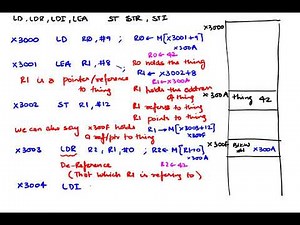 LD, LDR, LDI, LEA   ST STR, STI
x3000   LD   R0, #9 ;   R0 ← M[x3001+9]
x300A
R0 ← 42
x3001   LEA   R1, #8 ;   R0 holds the thing
R1 ← x3002+8
R1 is a pointer/reference   R1 ← x300A
to thing   R1 holds the address
of thing
x3002   ST   R1, #12   R1 refers to thing
R1 points to thing
we can also say x300F holds   R1 → M[x3003+12]
a ref/ptr to thing   x300F
x3003   LDR   R2, R1, #0 ;   R2 ← M[R1+0]
x300A
De-Reference   R2 ← 42
(That which R1 is referring to)
x3004   LDI
x3000
x300A   thing 42
x300F   x300A